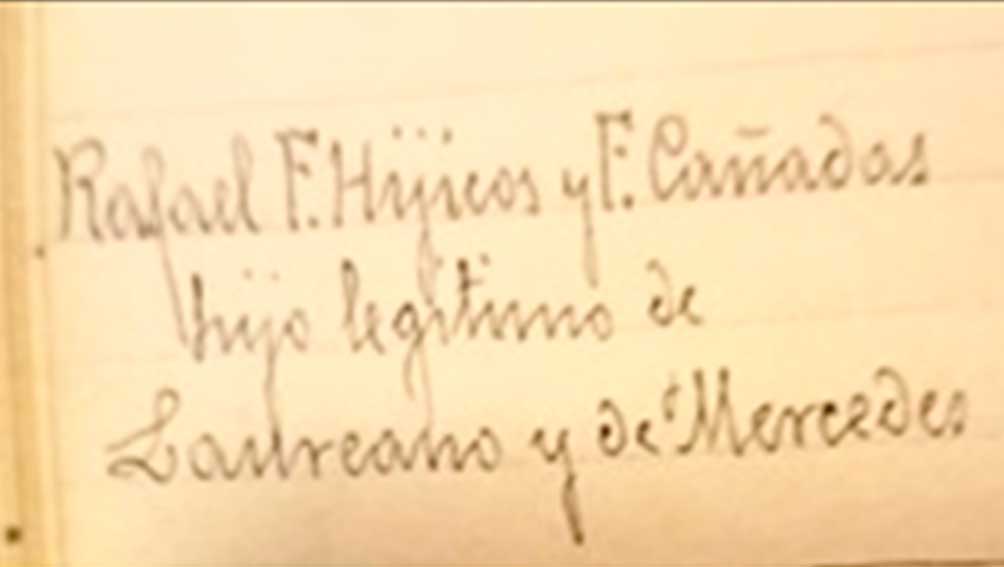 Rafael F. Hijicos y F. Cañadas
hijo legitimo de
Laureano y de Mercedes